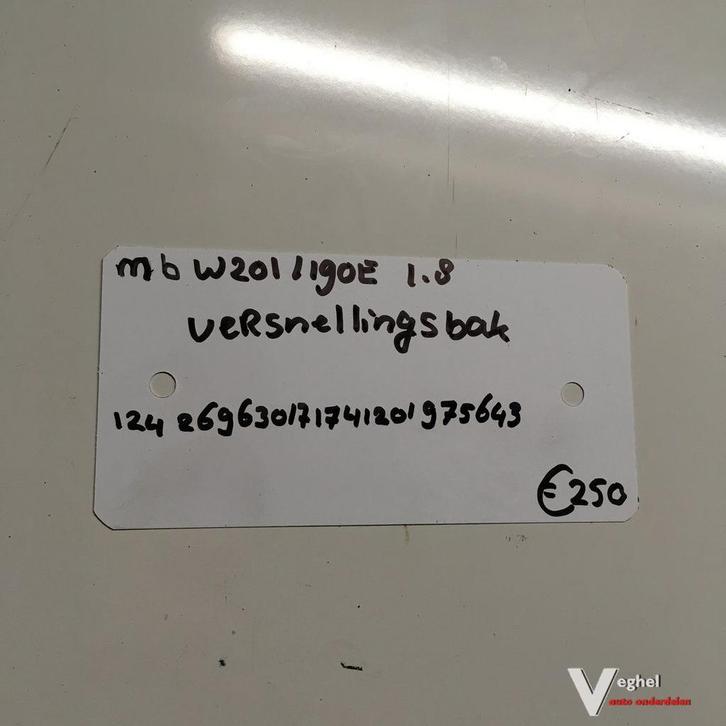 mb W201/190E 1.8
veRsnellingsbak
124 26963017174120 1975643
€250
Veghel
auto onderdelen